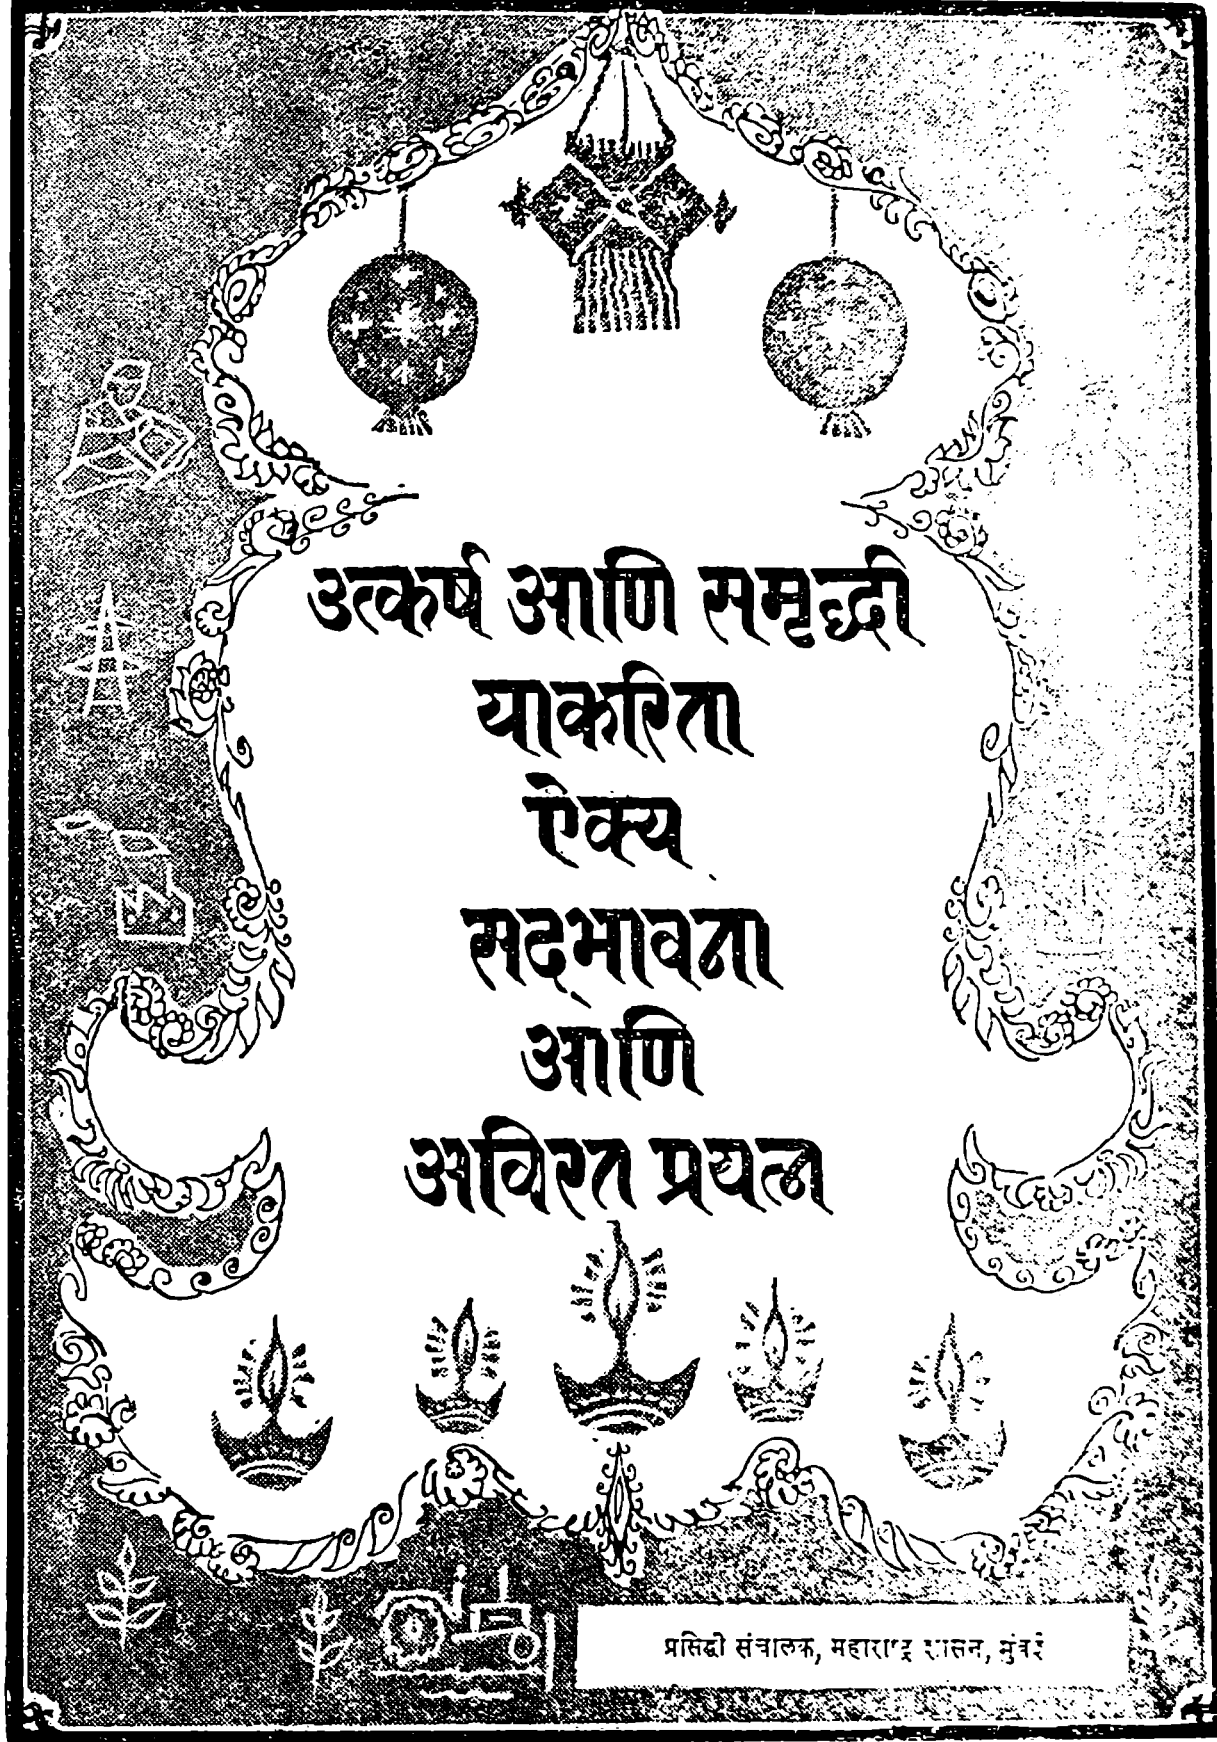 उत्कर्ष आणि समृद्धी
याकरिता
ऐक्य
सद्भावना
आणि
अविरत प्रयत्न
प्रसिद्धी संचालक, महाराष्ट्र शासन, मुंबई